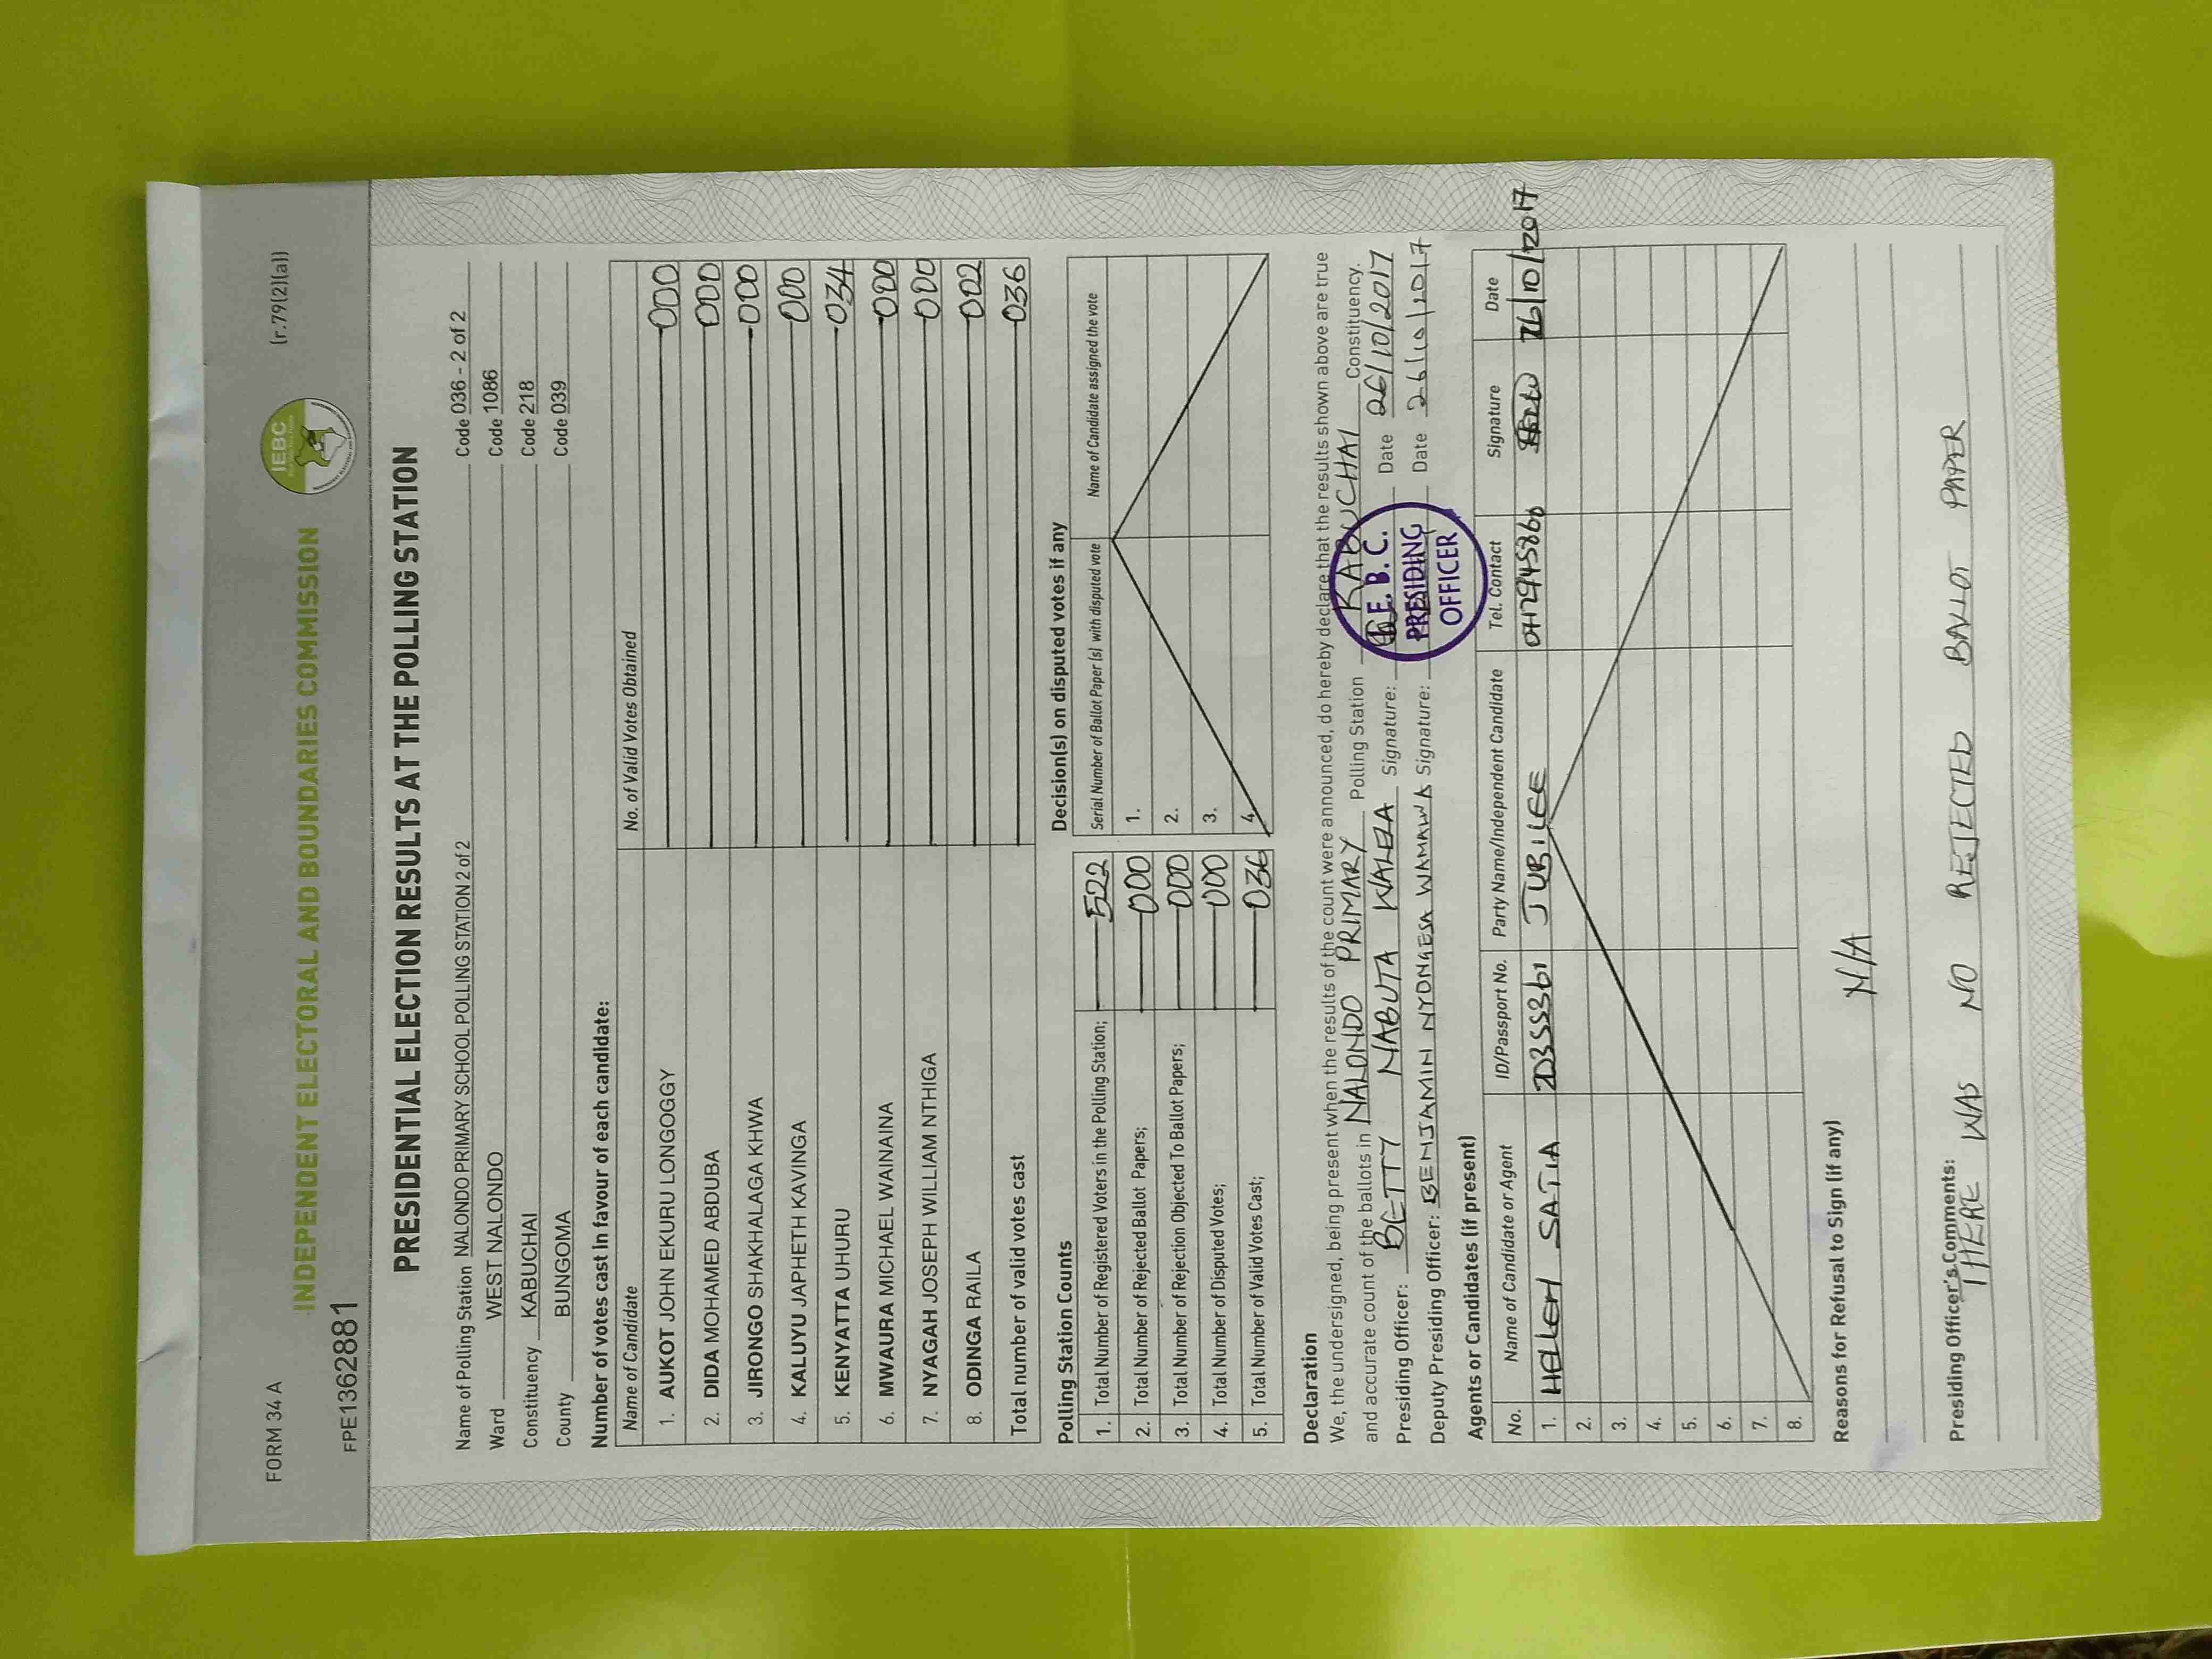 FORM 34 A
(r.79(2)(a))
INDEPENDENT ELECTORAL AND BOUNDARIES COMMISSION
IEBC
FPE1362881
PRESIDENTIAL ELECTION RESULTS AT THE POLLING STATION
Name of Polling Station NALONDO PRIMARY SCHOOL POLLING STATION 2 of 2 Code 036 - 2 of 2
Ward WEST NALONDO Code 1086
Constituency KABUCHAI Code 218
County BUNGOMA Code 039
Number of votes cast in favour of each candidate:
Name of Candidate No. of Valid Votes Obtained
1. AUKOT JOHN EKURU LONGOGGY 000
2. DIDA MOHAMED ABDUBA 000
3. JIRONGO SHAKHALAGA KHWA 000
4. KALUYU JAPHETH KAVINGA 000
5. KENYATTA UHURU 034
6. MWAURA MICHAEL WAINAINA 000
7. NYAGAH JOSEPH WILLIAM NTHIGA 000
8. ODINGA RAILA 002
Total number of valid votes cast 036
Polling Station Counts
1. Total Number of Registered Voters in the Polling Station; 522
2. Total Number of Rejected Ballot Papers; 000
3. Total Number of Rejection Objected To Ballot Papers; 000
4. Total Number of Disputed Votes; 000
5. Total Number of Valid Votes Cast; 036
Decision(s) on disputed votes if any
Serial Number of Ballot Paper (s) with disputed vote Name of Candidate assigned the vote
1.
2.
3.
4.
Declaration
We, the undersigned, being present when the results of the count were announced, do hereby declare that the results shown above are true
and accurate count of the ballots in NALONDO PRIMARY Polling Station KABUCHAI Constituency.
Presiding Officer: BETTY NABUTA WALELA Signature: Date 26/10/2017
Deputy Presiding Officer: BENJAMIN NYONGESA WAMAWA Signature: Date 26/10/2017
I.E.B.C.
PRESIDING
OFFICER
Agents or Candidates (if present)
No. Name of Candidate or Agent ID/Passport No. Party Name/Independent Candidate Tel. Contact Signature Date
1. HELLEN SATIA JUBILEE 26/10/2017
2.
3.
4.
5.
6.
7.
8.
Reasons for Refusal to Sign (if any)
N/A
Presiding Officer's Comments:
THERE WAS NO REJECTED BALLOT PAPER